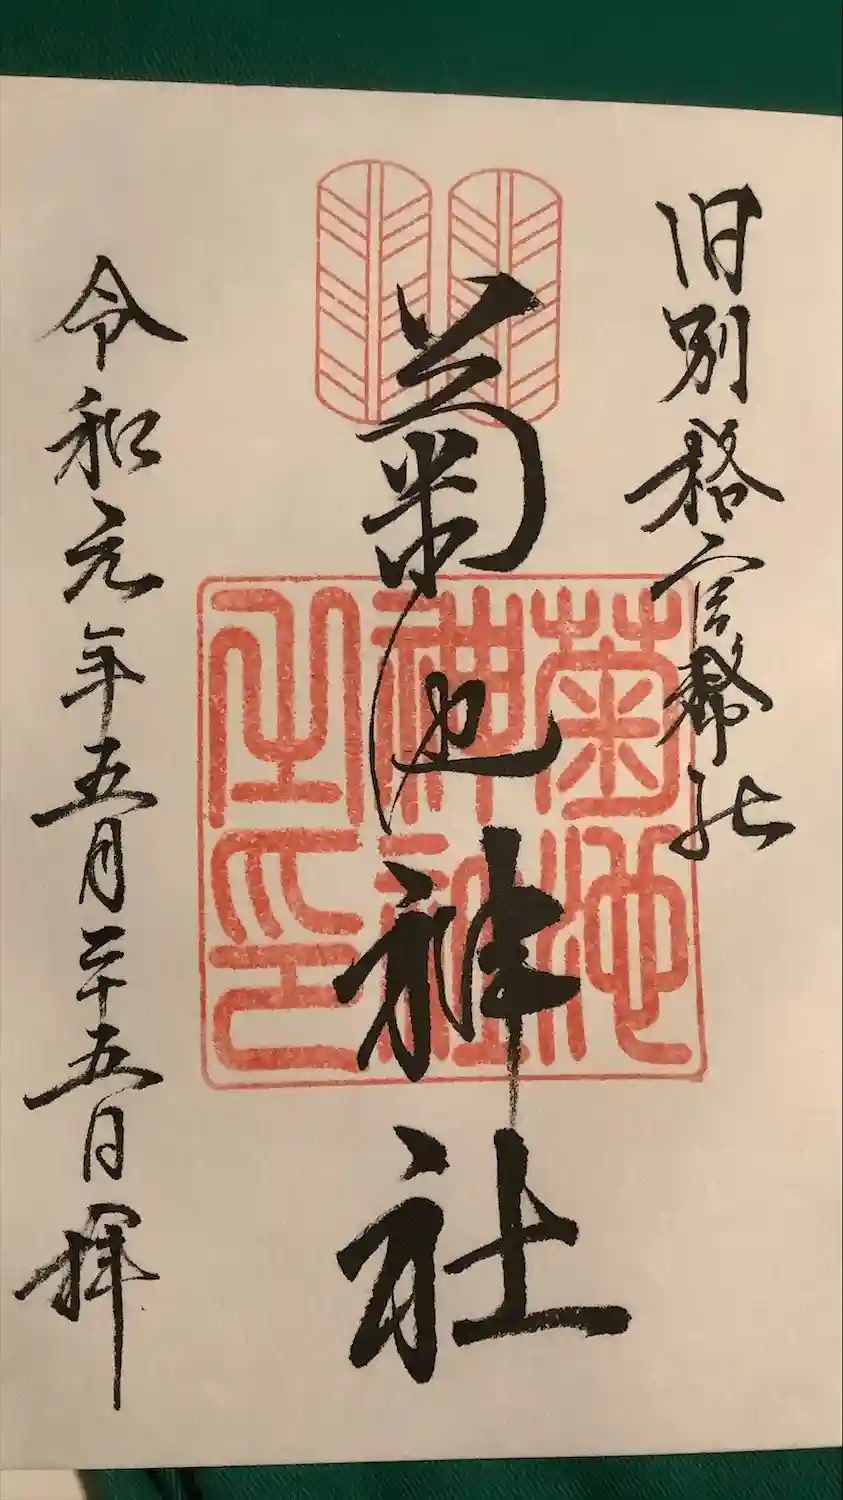 旧別格官幣社
菊池神社
菊池
神社
之印
令和元年五月二十五日 拝